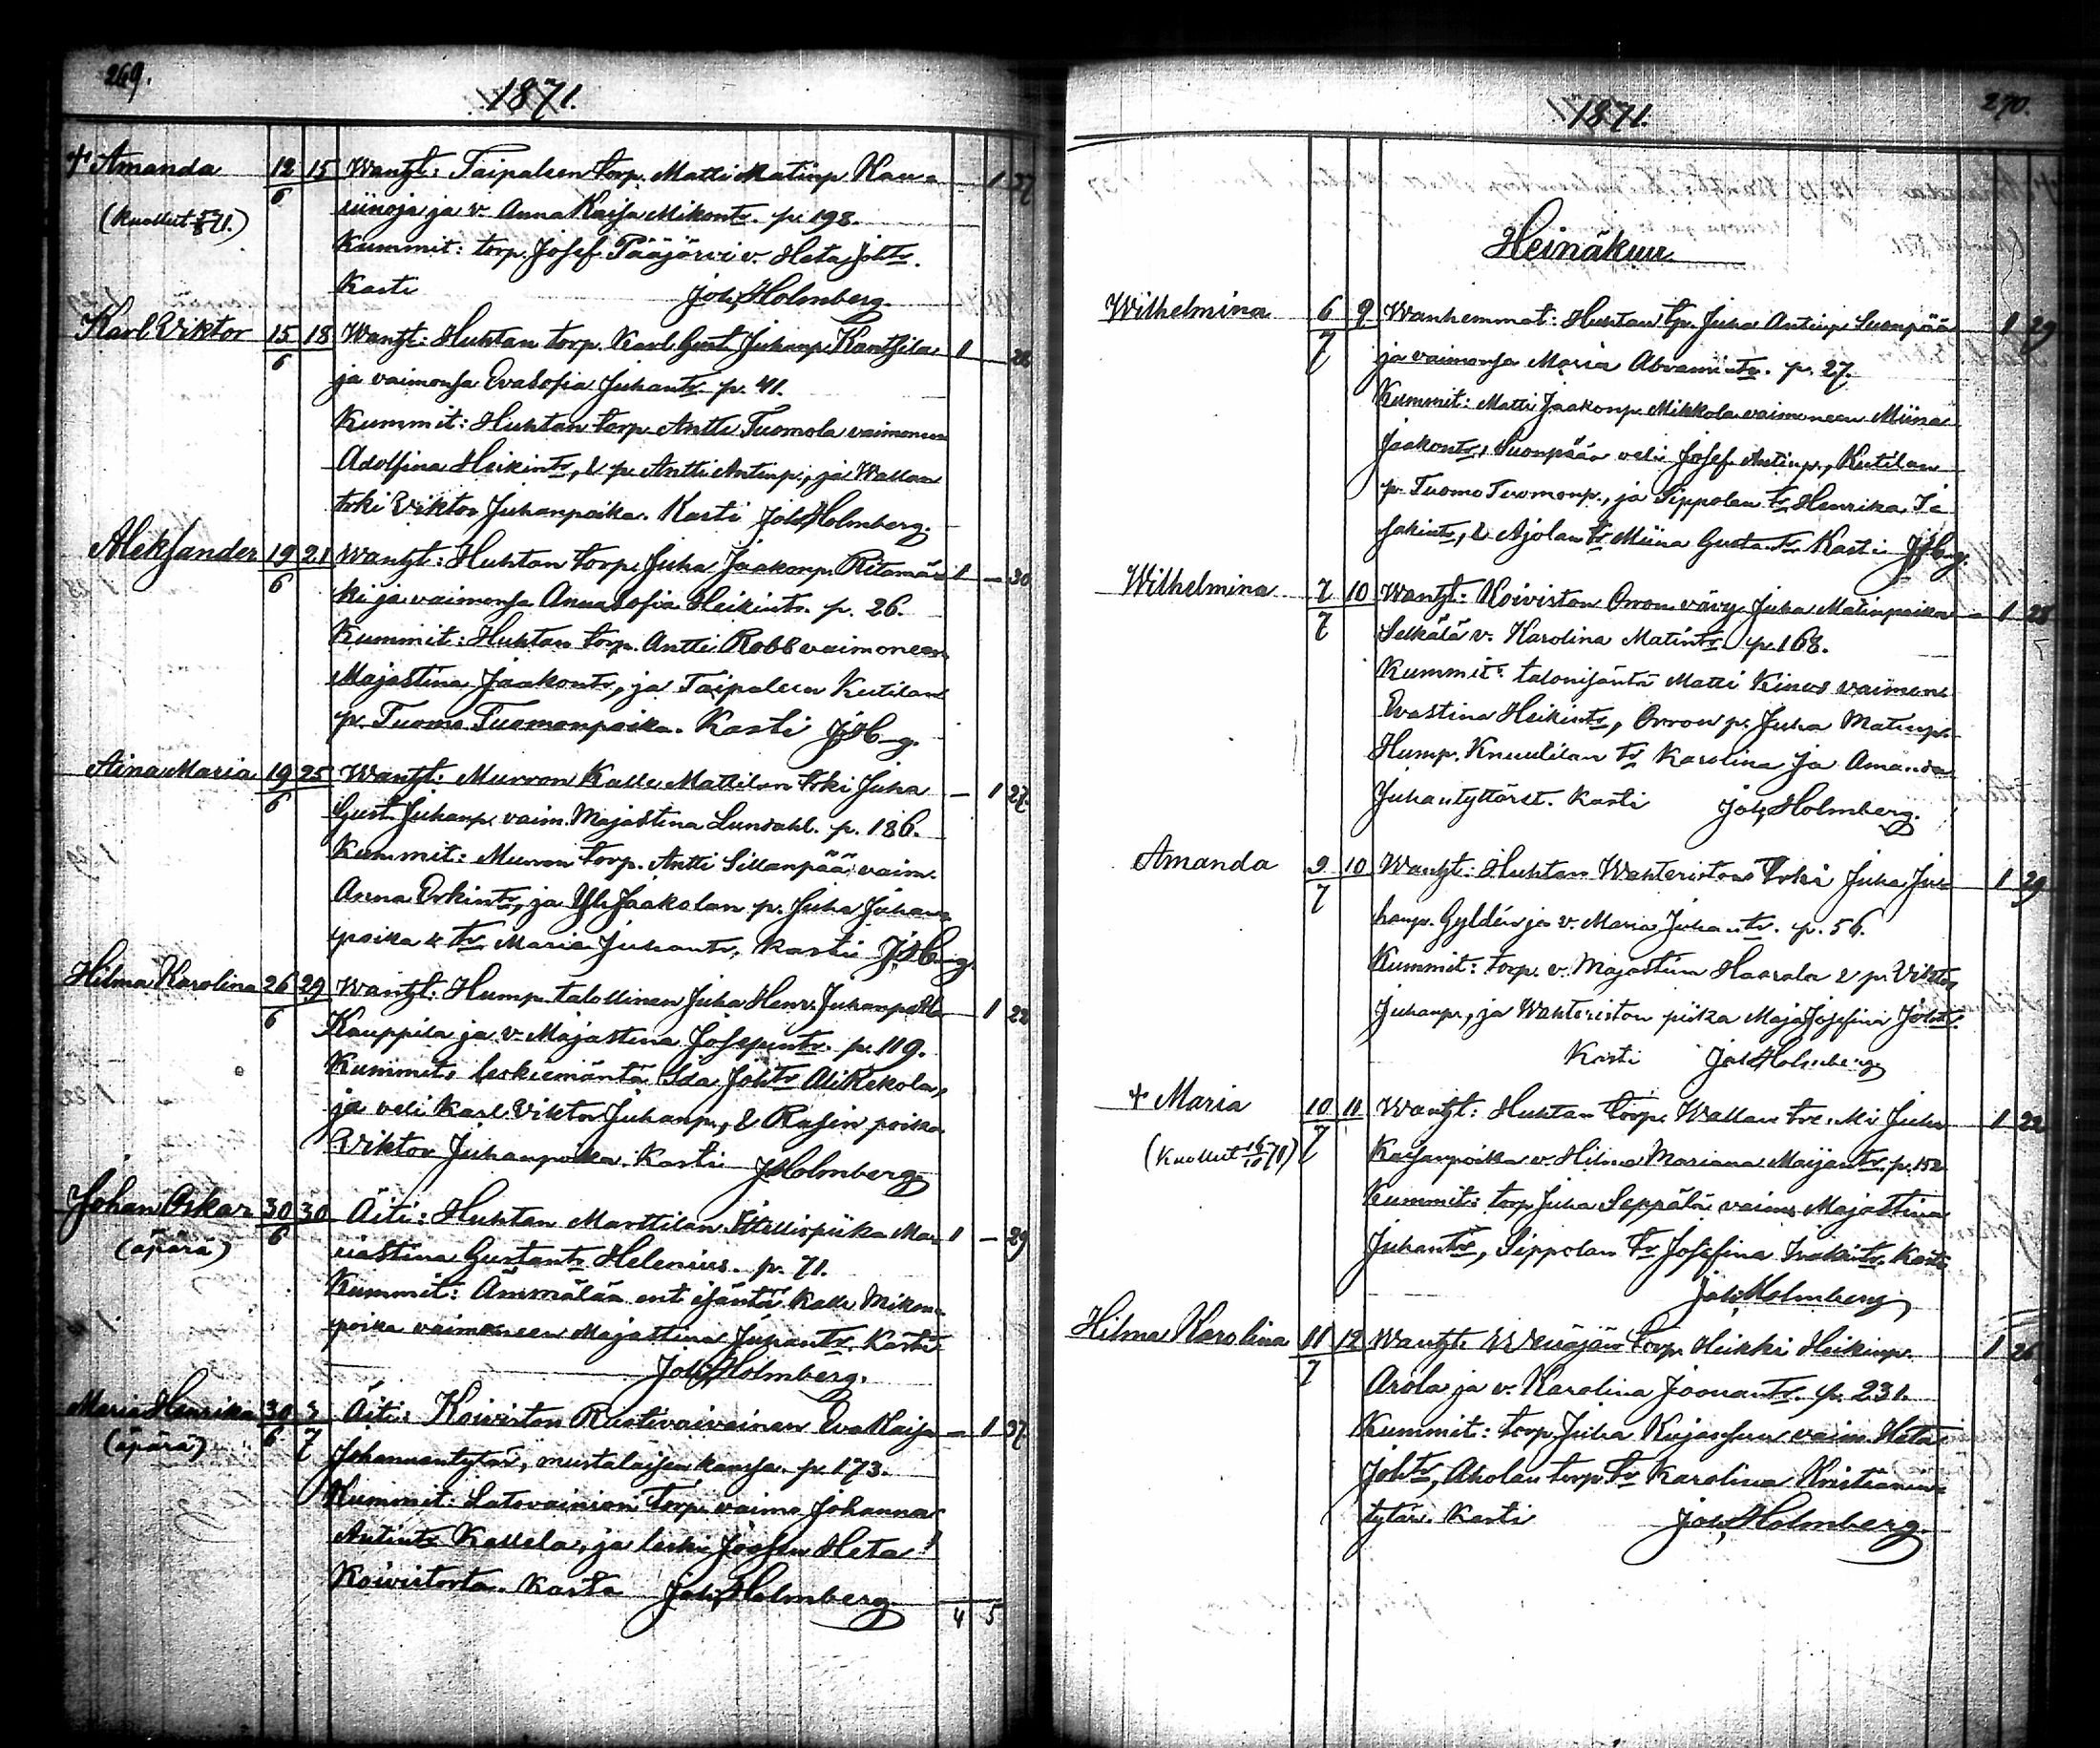 269.
1871.
+ Amanda 12/6 15 Wanht: Taipaleen torp. Matti Matinp. Kau= - 1 37
(kuollut /71.) ja v. Anna Kaisa Mikontr. p. 198.
Kummit: torp. Josef Pääjärvi v. Heta Johtr.
Kasti Joh. Holmberg.
Karl Viktor 15/6 18 Wanht: Huhtan torp. Karl Gust. Juhanp. 1 -
ja vaimonsa Eva Sofia Juhantr. p. 41.
Kummit: Huhtan torp. Antti Tuomola vaimoneen
Adolfina Heikintr, & p. Antti Antinp., ja Wallan
trki Viktor Juhanpoika. Kasti Joh. Holmberg.
Aleksander 19/6 21 Wanht: Huhtan torp. Juha Jaakonp. Ritamä= 1 - 30
ki ja vaimonsa Anna Sofia Heikintr. p. 26.
Kummit: Huhtan torp. Antti Robb vaimoneen
Majastina Jaakontr, ja Taipaleen Kutilan
p. Tuomo Tuomonpoika. Kasti JHb-g.
Aina Maria 19/6 25 Wanht: Murron Kalle Mattilan trki Juha - 1 27.
Gust. Juhanp. vaim. Majastina Lundahl. p. 186.
Kummit: Murron torp. Antti Sillanpää vaim.
Anna Erkintr, ja Yli Jaakolan p. Juha Juhan=
poika & tr Maria Juhantr. Kasti JHb-g.
Hilma Karolina 26/6 29 Wanht: Hump. talollinen Juha Henr. Juhanp. 1 22
Kauppila ja v. Majastina Josepintr. p. 119.
Kummit: leskiemäntä Ida Johtr Ali Rekola,
ja veli Karl Viktor Juhanp., & Rasin poika
Viktor Juhanpoika. Kasti J. Holmberg.
Johan Oskar 30/6 30 Äiti: Huhtan Marttilan piika Ma= 1 - 29
(äpärä) iastina Gustantr Helenius. p. 71.
Kummit: Ämmälän ent. isäntä Kalle Mikon=
poika vaimoneen Majastina Juhantr. Kasti
Joh. Holmberg.
Maria Henrika 30/6 3/7 Äiti: Koiviston Ruotivaivainen Eva Kaisa - 1 37.
(äpärä) Johannentytär, mustalaisen kanssa. p. 173.
Kummit: Latovainion Torp. vaimo Johanna
Antintr Kallela, ja leski Heta
Koivistosta. Kasti Joh. Holmberg.
4 5
1871.
270.
Heinäkuu
Wilhelmina 6/7 9 Wanhemmat: Huhtan tp. Juha Antinp. Suonpää 1 29
ja vaimonsa Maria Abramintr. p. 27.
Kummit: Matti Jaakonp. Mikkola vaimoneen Miina
Jaakontr, Suonpään veli Josef Antinp., Kutilan
p. Tuomo Tuomonp., ja Sippolan tr Henrika
& Ajolan tr Miina Gustantr. Kasti JHb-g.
Wilhelmina 7/7 10 Wanht: Koiviston Orron vävy Juha Matinpoika - 1 28
Selkälä v. Karolina Matintr p. 168.
Kummit: talonisäntä Matti Keinus vaimone
Evastina Heikintr, Orron p. Juha Matinp.
Hump. Knuutilan tr Karolina ja Amanda
Juhantyttäret. Kasti Joh. Holmberg.
Amanda 9/7 10 Wanht: Huhtan Wahteriston trki Juha Ju= 1 29
hanp. Gyldén ja v. Maria Juhantr. p. 56.
Kummit: torp. v. Majastina Haarala & p. Viktor
Juhanp., ja Wahteriston piika Maja Josefina Johtr.
Kasti Joh. Holmberg
+ Maria 10/7 11 Wanht: Huhtan torp. Wallan Juha 1 22
(kuollut 16/10 71) Kaisanpoika v. Hilma Mariana Maijantr. p. 152
Kummit: torp. Juha Seppälä vaimo Majastina
Juhantr, Sippolan tr Josefina Kasti
Joh. Holmberg
Hilma Karolina 11/7 12 Wanht: torp. Heikki Heikinp. 1 26
Arola ja v. Karolina Joonantr. p. 231.
Kummit: torp. Juha Kujansuu vaim. Heta
Johtr, Aholan torp. tr Karolina Kristianin=
tytär. Kasti Joh. Holmberg